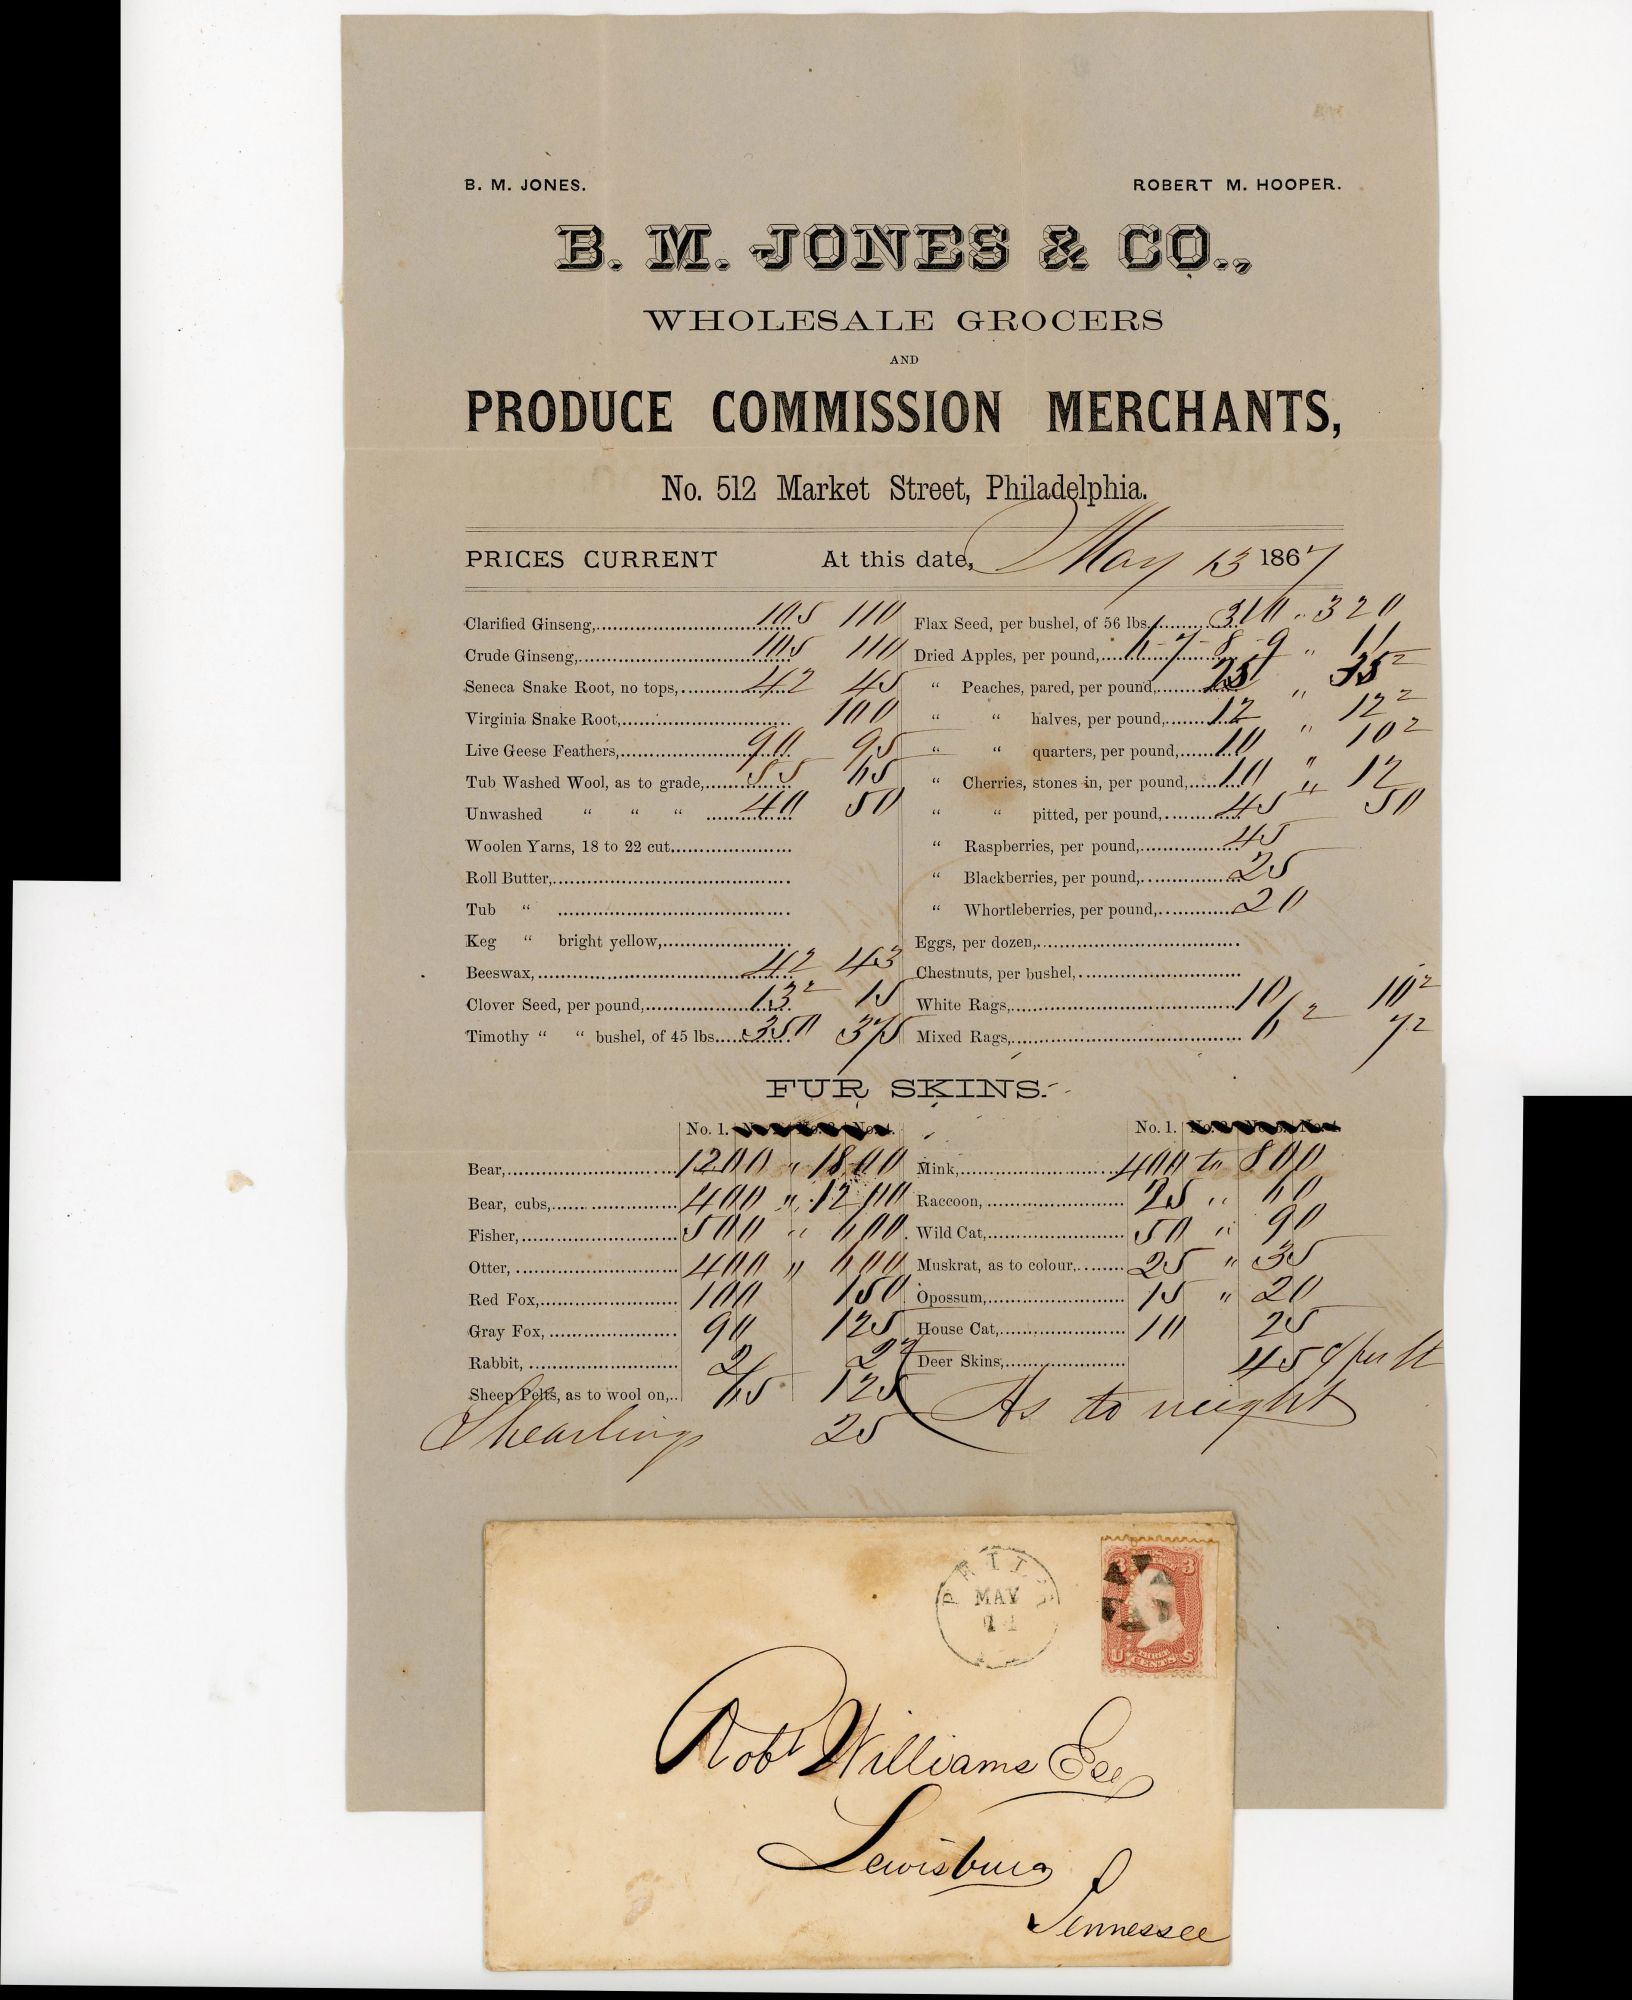 B. M. JONES. ROBERT M. HOOPER.
B. M. JONES & CO.,
WHOLESALE GROCERS
AND
PRODUCE COMMISSION MERCHANTS,
No. 512 Market Street, Philadelphia.
PRICES CURRENT At this date, May 13 1867
Clarified Ginseng, 105 110
Crude Ginseng, 105 110
Seneca Snake Root, no tops, 42 45
Virginia Snake Root, 100
Live Geese Feathers, 90 95
Tub Washed Wool, as to grade, 55 65
Unwashed “ “ “ 40 50
Woolen Yarns, 18 to 22 cut
Roll Butter,
Tub “
Keg “ bright yellow,
Beeswax, 42 43
Clover Seed, per pound, 13² 15
Timothy “ “ bushel, of 45 lbs. 350 375
Flax Seed, per bushel, of 56 lbs. 310 " 320
Dried Apples, per pound, 6-7-8-9 " 11
“ Peaches, pared, per pound, 25 " 35²
“ “ halves, per pound, 12 " 12²
“ “ quarters, per pound, 10 " 10²
“ Cherries, stones in, per pound, 10 " 12
“ “ pitted, per pound, 45 50
“ Raspberries, per pound, 45
“ Blackberries, per pound, 25
“ Whortleberries, per pound, 20
Eggs, per dozen,
Chestnuts, per bushel,
White Rags, 10 10²
Mixed Rags, 6² 7²
FUR SKINS.
No. 1.
Bear, 1200 " 1800
Bear, cubs, 400 " 1200
Fisher, 500 " 600
Otter, 400 " 600
Red Fox, 100 150
Gray Fox, 90 125
Rabbit, 2 2²
Sheep Pelts, as to wool on, 65 125
Shearlings 25
No. 1.
Mink, 400 to 800
Raccoon, 25 " 60
Wild Cat, 50 " 90
Muskrat, as to colour, 25 " 35
Opossum, 15 " 20
House Cat, 10 25
Deer Skins, 45 ¢ per lb
As to weight
PHILA
MAY
14
3 3
U S
Robt Williams Esq
Lewisburg
Tennessee